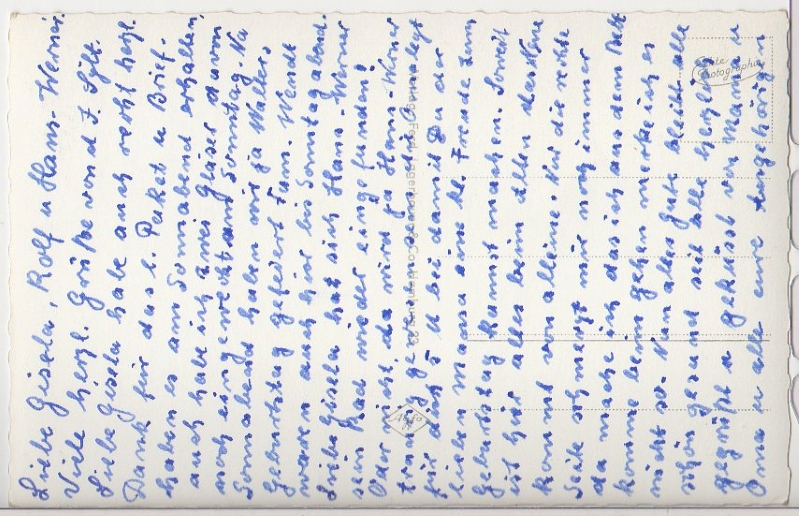 Liebe Gisela, Rolf u Hans-Werner
Viele herzl. Grüße von d. I. Sylt.
Liebe Gisela habe auch recht herzl.
Dank für das l. Paket u Brief.
haben es am Sonnabend erhalten.
auch habe ich zwei Gläser davon
noch eingeweckt am Sonntag. Na
Sonnabend haben wir ja Walters
Geburtstag gefeiert Fam. Wendt
waren auch hier bis Sonntagabend.
Liebe Gisela hat sich Hans-Werner
sein Rad wieder eingefunden?
Oder nicht, da wird ja Hans-Werner
traurig
für dich 5 M bei damit Du der
lieben Mama eine kl. Freude zum
Geburtstag kannst machen. Soweit
ist hier alles beim Alten das Neue
kommt von alleine. Nur die rechte
Seite schmerzt mir noch immer
da mache ich das ich aus dem Bett
komme beim gehen merke ich es
nicht so. Nun alles Gute bleibt alle
schön gesund seit alle herzlich
gegrüßt u geküsst von Mama u
Oma u alle eure angehörigen
Echte
Photographie